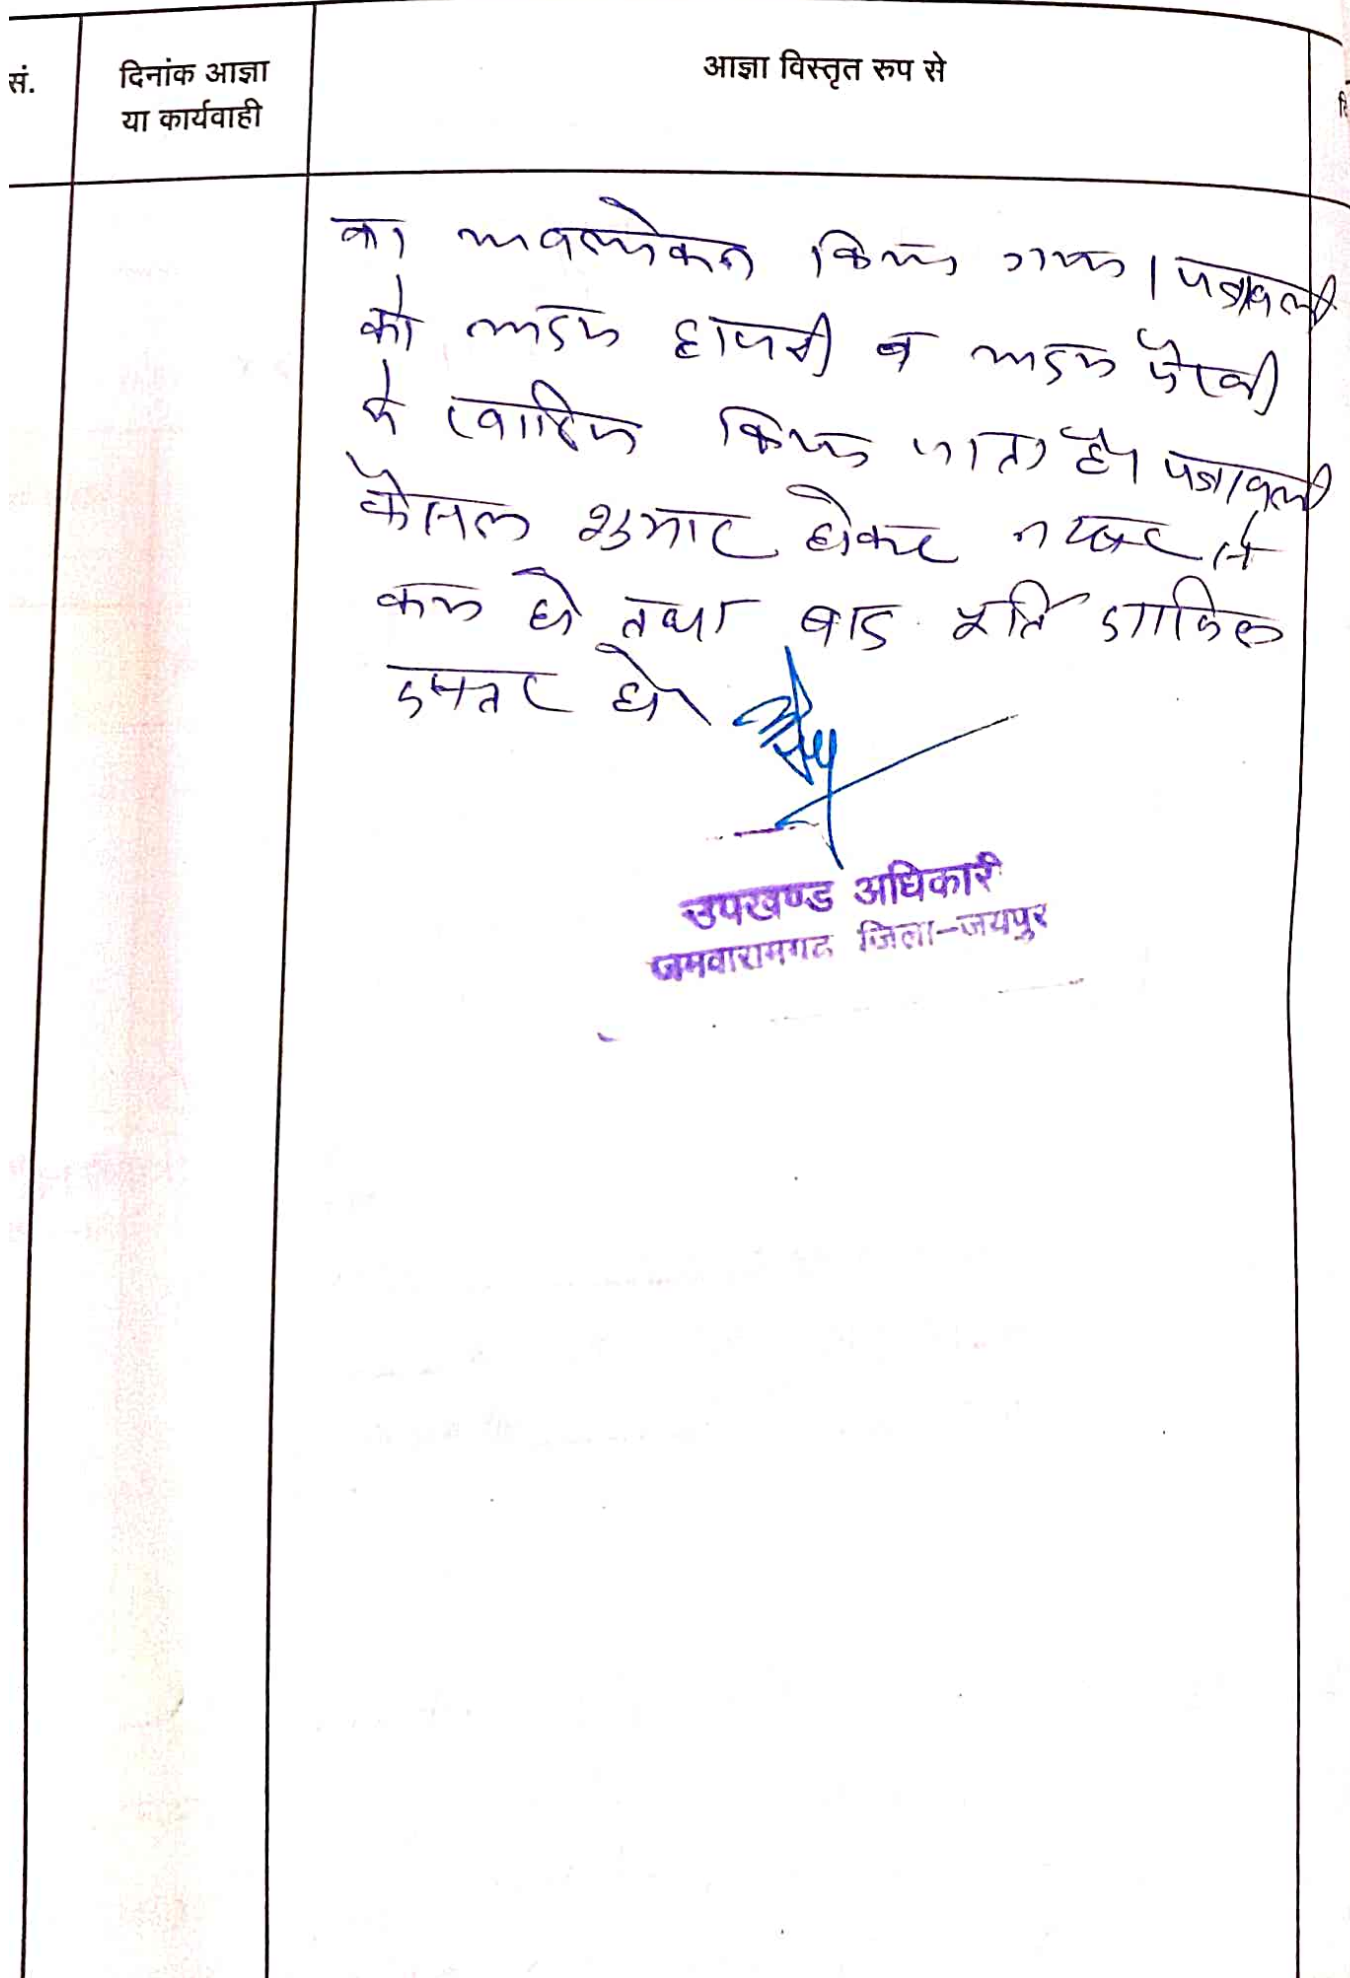 सं.
दिनांक आज्ञा
या कार्यवाही
आज्ञा विस्तृत रुप से
का अवलोकन किया गया। पत्रावली
को अदम हाजरी व अदम पैरवी
में खारिज किया जाता है। पत्रावली
फैसल शुमार होकर नम्बर से
कम हो तथा बाद पूर्ति दाखिल
दफ्तर हो।
उपखण्ड अधिकारी
जमवारामगढ जिला-जयपुर